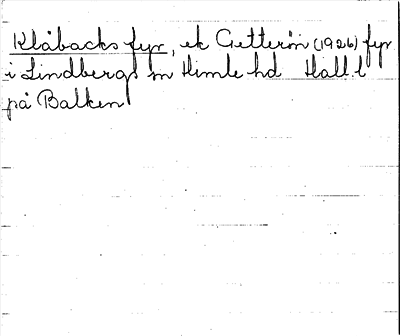 Klåbacks fyr, ek Getterön (1926) fyr
i Lindbergs sn Himle hd Hall. l
på Balken